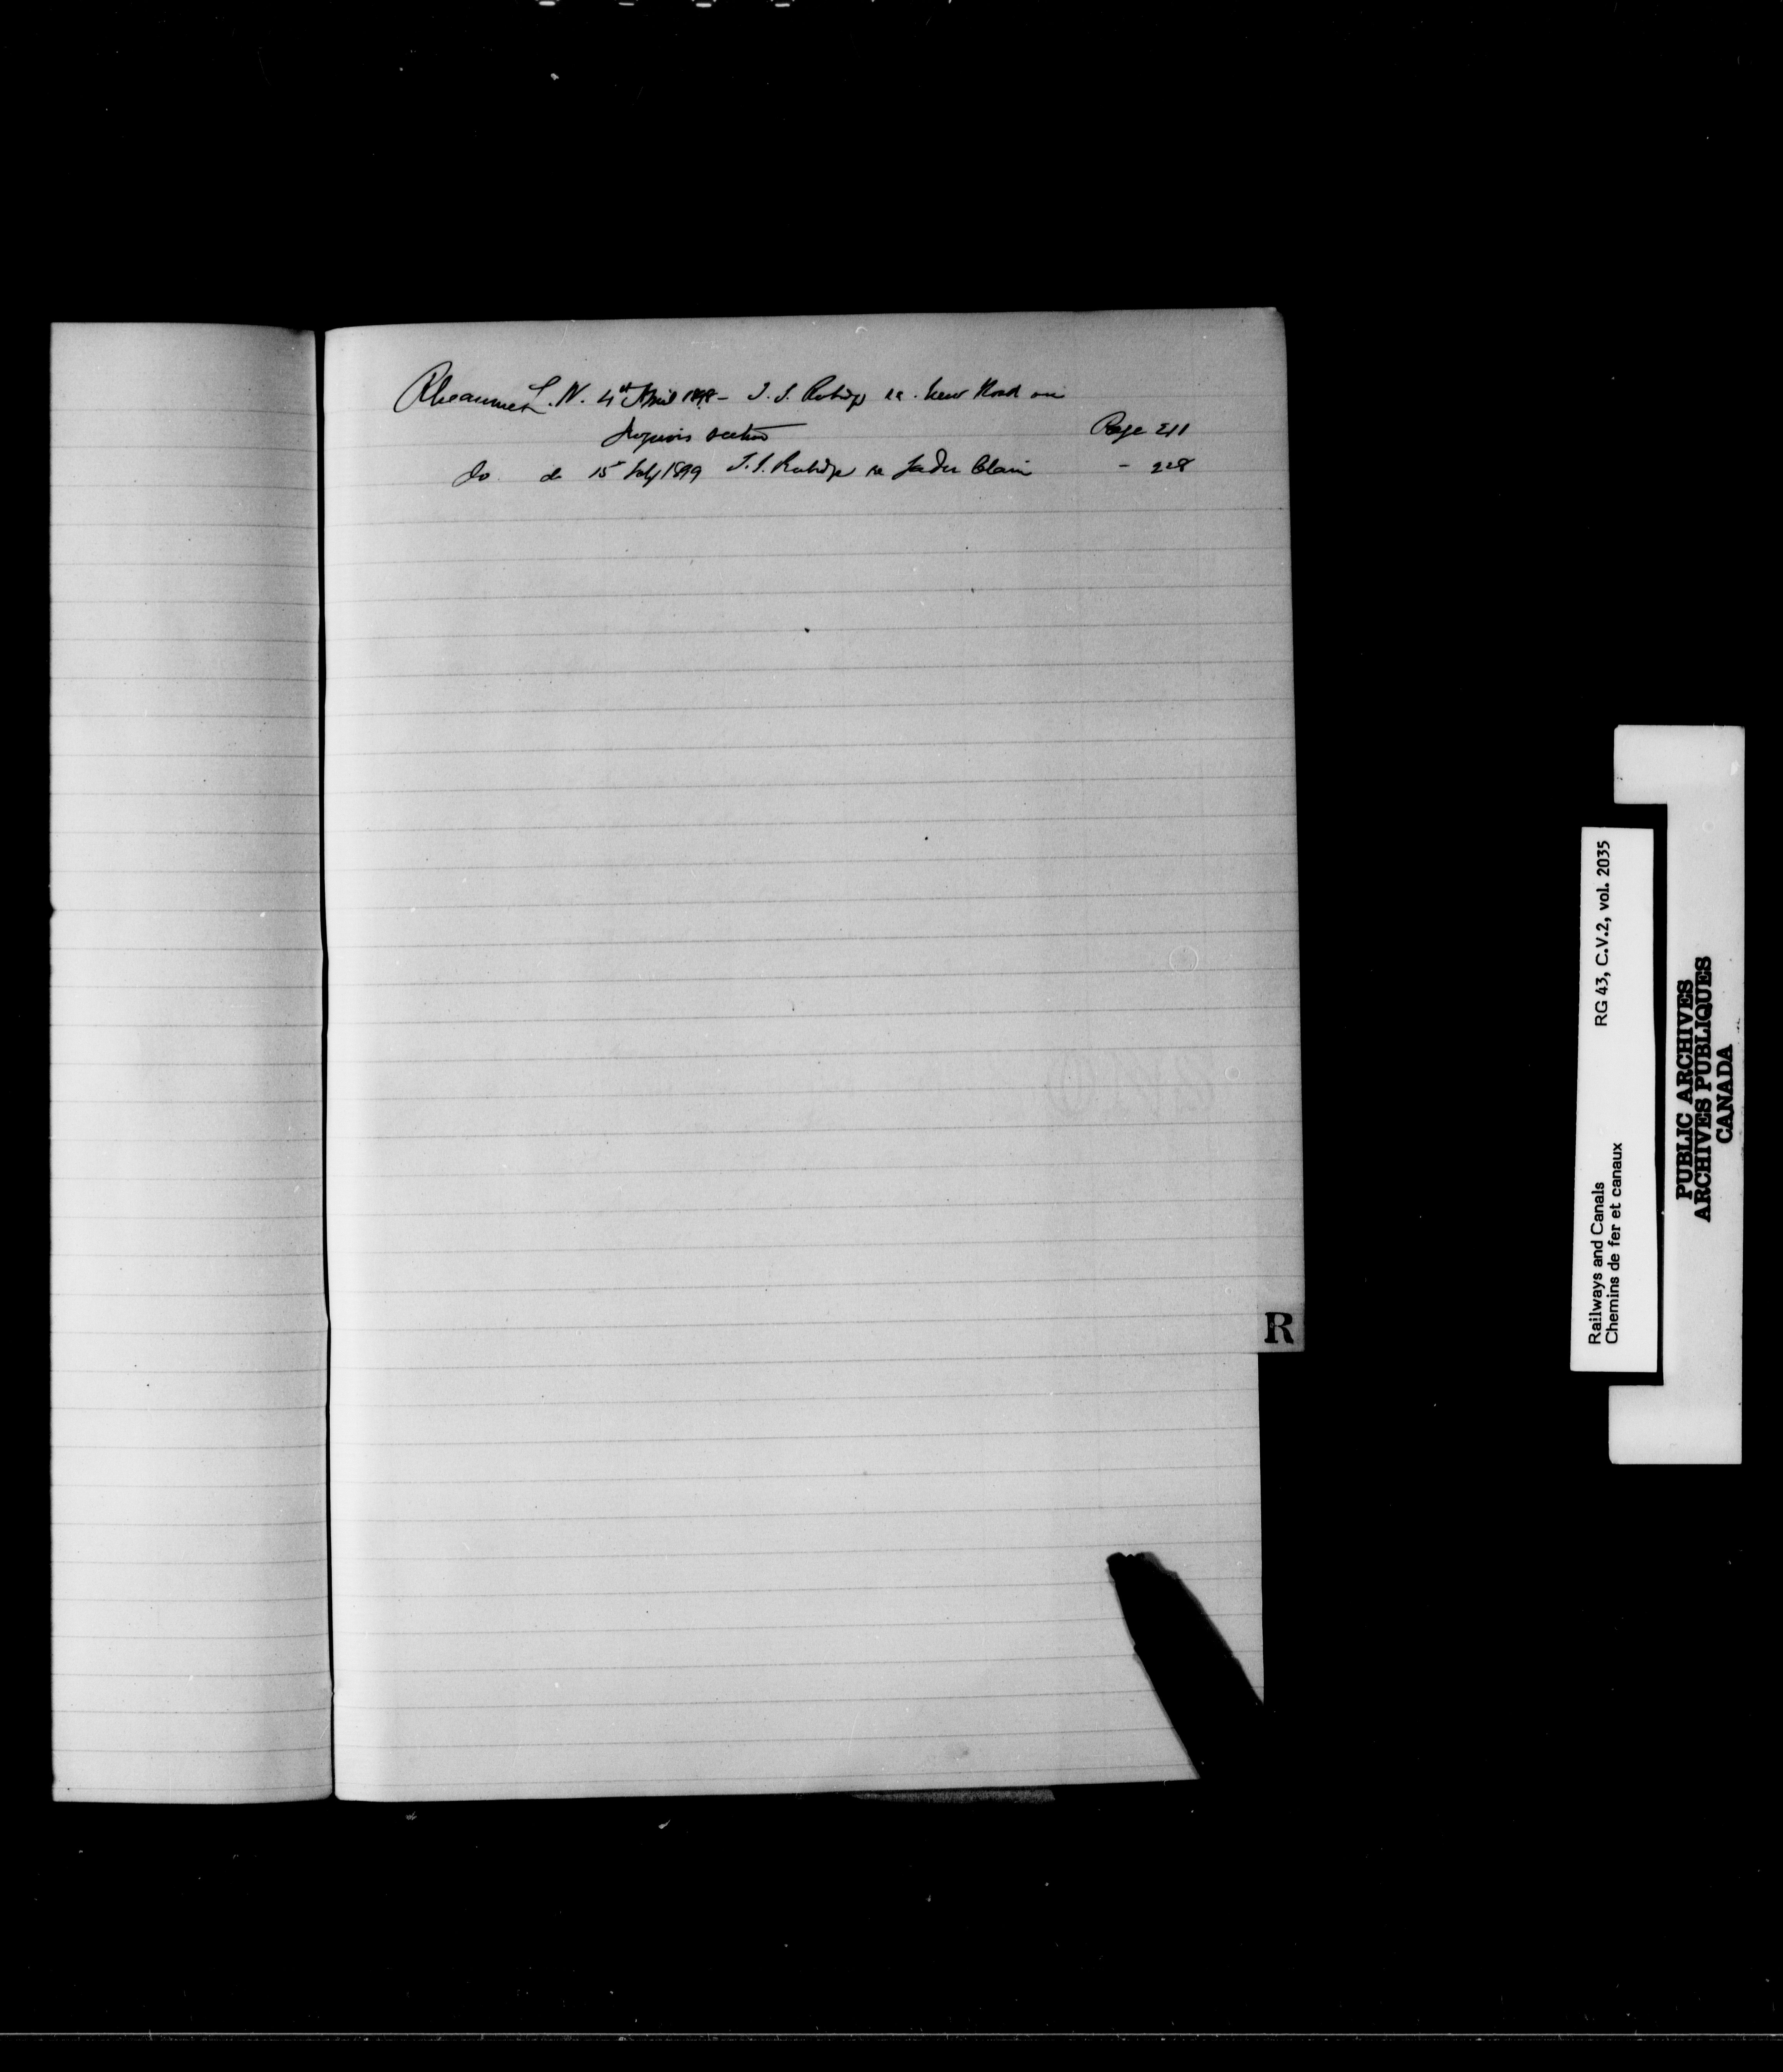 Rheaume L. N. 4th April 1898 - T. S. Rubidge re. New Road on
Iroquois section Page 211
do. do 15 July 1899 T. S. Rubidge re Lader Claim - 228
R
RG 43, C.V.2, vol. 2035
Railways and Canals
Chemins de fer et canaux
PUBLIC ARCHIVES
ARCHIVES PUBLIQUES
CANADA